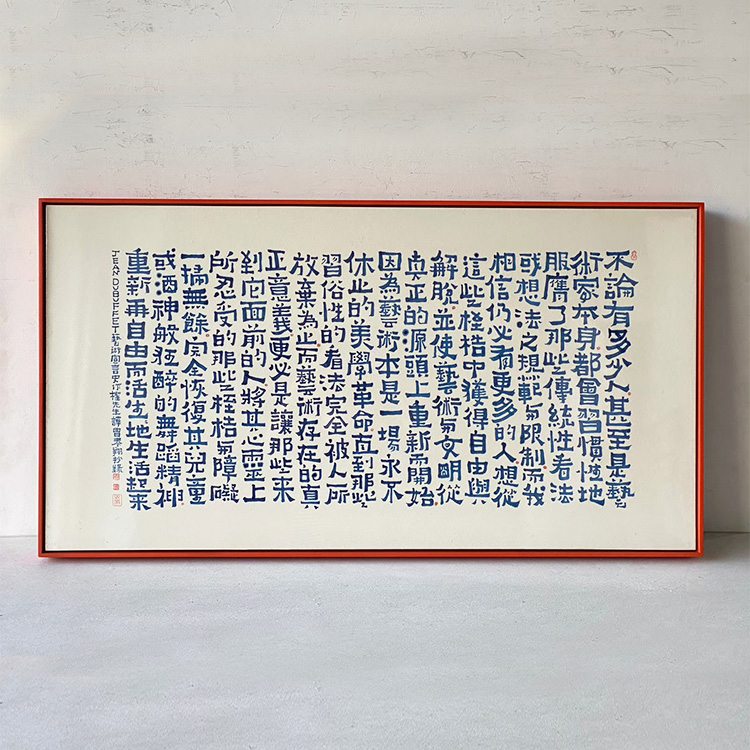 不論有多少人甚至是藝
術家本身都會習慣性地
服膺了那些傳統性看法
或想法之規範與限制而我
相信仍必有更多的人想從
這些桎梏中獲得自由與
解脫並使藝術與文明從
真正的源頭上重新開始
因為藝術本是一場永不
休止的美學革命直到那些
習俗性的看法完全被人所
放棄為止而藝術存在的真
正意義更必是讓那些來
到它面前的人將其心靈上
所忍受的那些桎梏與障礙
一掃無餘完全恢復其兒童
或酒神般狂醉的舞蹈精神
重新再自由而活生地生活起來
JEAN DVBVFFET藝術寓言史作檉先生譯